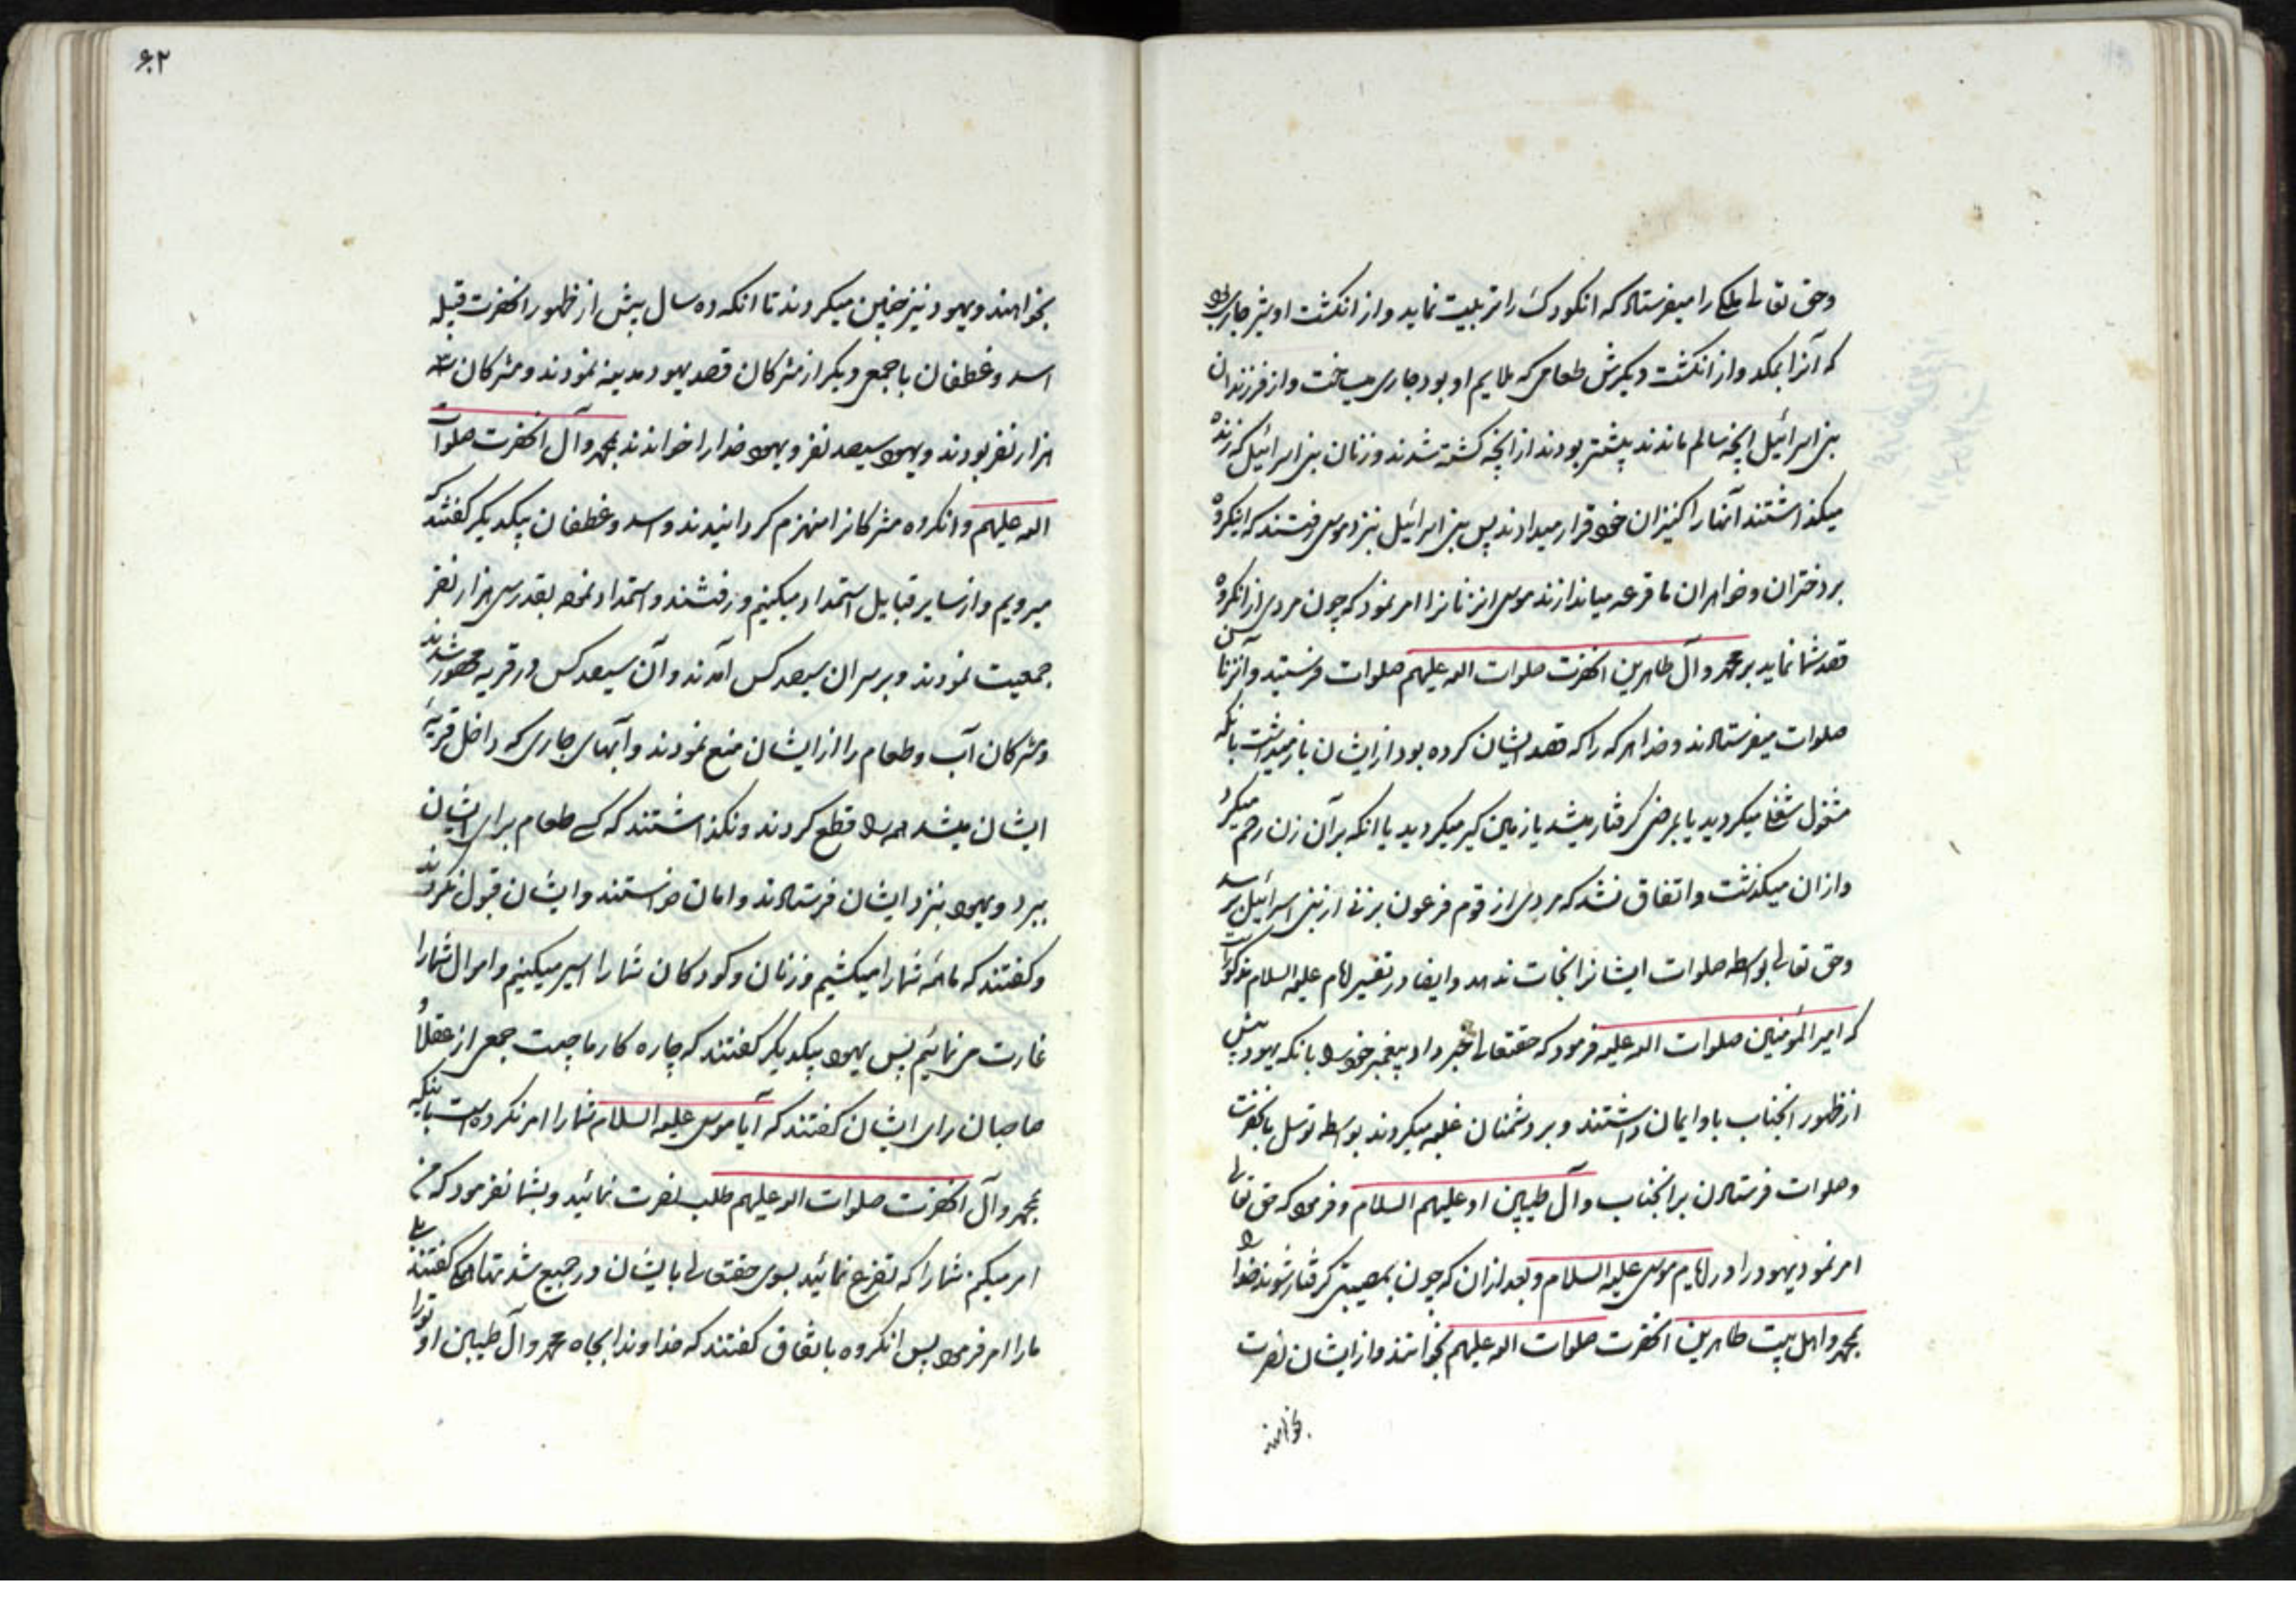 وحق تعالی ملکی را میفرستاد که انکودک را تربیت نماید و از انکشت او شیر جاری بود
که آنرا بمکد و از انکشت دیکرش طعامی که ملایم او بود جاری میساخت و از فرزندان
بنی اسرائیل انچه سالم ماندند بیشتر بودند از انچه کشته شدند و زنان بنی اسرائیل که زنده
میکذاشتند آنها را کنیزان خود قرار میدادند پس بنی اسرائیل بنزد موسی رفتند که اینکروه
بر دختران و خواهران ما قرعه میاندازند موسی انزنانرا امر نمود که چون مردی از انکروه
قصد شما نماید بر محمد و آل طاهرین انحضرت صلوات الله علیهم صلوات فرستید و آنزنان
صلوات میفرستادند و خدا هر که را که قصد ایشان کرده بود از ایشان باز میداشت بانکه
مشغول شغلی میکردید یا بمرضی کرفتار میشد یا زمین کیر میکردید یا انکه بر آن زن رحم میکرد
و از ان میکذشت و اتفاق نشد که مردی از قوم فرعون بزنی از بنی اسرائیل برسد
وحق تعالی بواسطه صلوات ایشانرا نجات ندهد و ایضا در تفسیر امام علیه السلام مذکور است
که امیر المؤمنین صلوات الله علیه فرمود که حقتعالی خبر داد پیغمبر خود را بانکه یهود پیش
از ظهور انجناب باو ایمان داشتند و بر دشمنان غلبه میکردند بواسطه توسل بانحضرت
وصلوات فرستادن بر انجناب و آل طیبین او علیهم السلام و فرمود که حق تعالی
امر نمود یهود را در ایام موسی علیه السلام و بعد از ان که چون بمصیبتی کرفتار شوند خدا را
بمحمد و اهل بیت طاهرین انحضرت صلوات الله علیهم بخوانند و از ایشان نصرت
بخواهند
۶۲
بخواهند و یهود نیز چنین میکردند تا انکه ده سال پیش از ظهور انحضرت قبیله
اسد و غطفان با جمعی دیکر از مشرکان قصد یهود مدینه نمودند و مشرکان سه
هزار نفر بودند و یهود سیصد نفر و یهود خدا را خواندند بمحمد و آل انحضرت صلوات
الله علیهم و انکروه مشرکانرا منهزم کردانیدند و اسد و غطفان بیکدیکر کفتند که
میرویم و از سایر قبایل استمداد میکنیم و رفتند و استمداد نموده بقدر سی هزار نفر
جمعیت نمودند و بر سر ان سیصد کس آمدند و آن سیصد کس در قریه محصور شدند
و مشرکان آب و طعام را از ایشان منع نمودند و آبهای جاری که داخل قریهٔ
ایشان میشد همه را قطع کردند و نکذاشتند که کسی طعام برای ایشان
ببرد و یهود بنزد ایشان فرستادند و امان خواستند و ایشان قبول نکردند
و کفتند که ما همه شما را میکشیم و زنان و کودکان شما را اسیر میکنیم و اموال شما را
غارت می نمائیم پس یهود بیکدیکر کفتند که چاره کار ما چیست جمعی از عقلا و
صاحبان رای ایشان کفتند که آیا موسی علیه السلام شما را امر نکرده است باینکه
بمحمد و آل انحضرت صلوات الله علیهم طلب نصرت نمائید و بشما نفرمود که من
امر میکنم شما را که تضرع نمائید بسوی حقتعالی بایشان در جمیع شدتها همکی کفتند بلی
ما را امر فرمود پس انکروه باتفاق کفتند که خداوندا بجاه محمد و آل طیبین او تو را